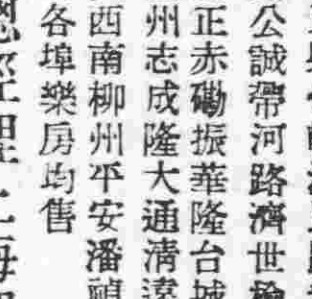 公誠帶河路濟世
正赤磡振華隆台城
州志成隆大通清遠
西南柳州平安潘
各埠樂房均售
總經理上海